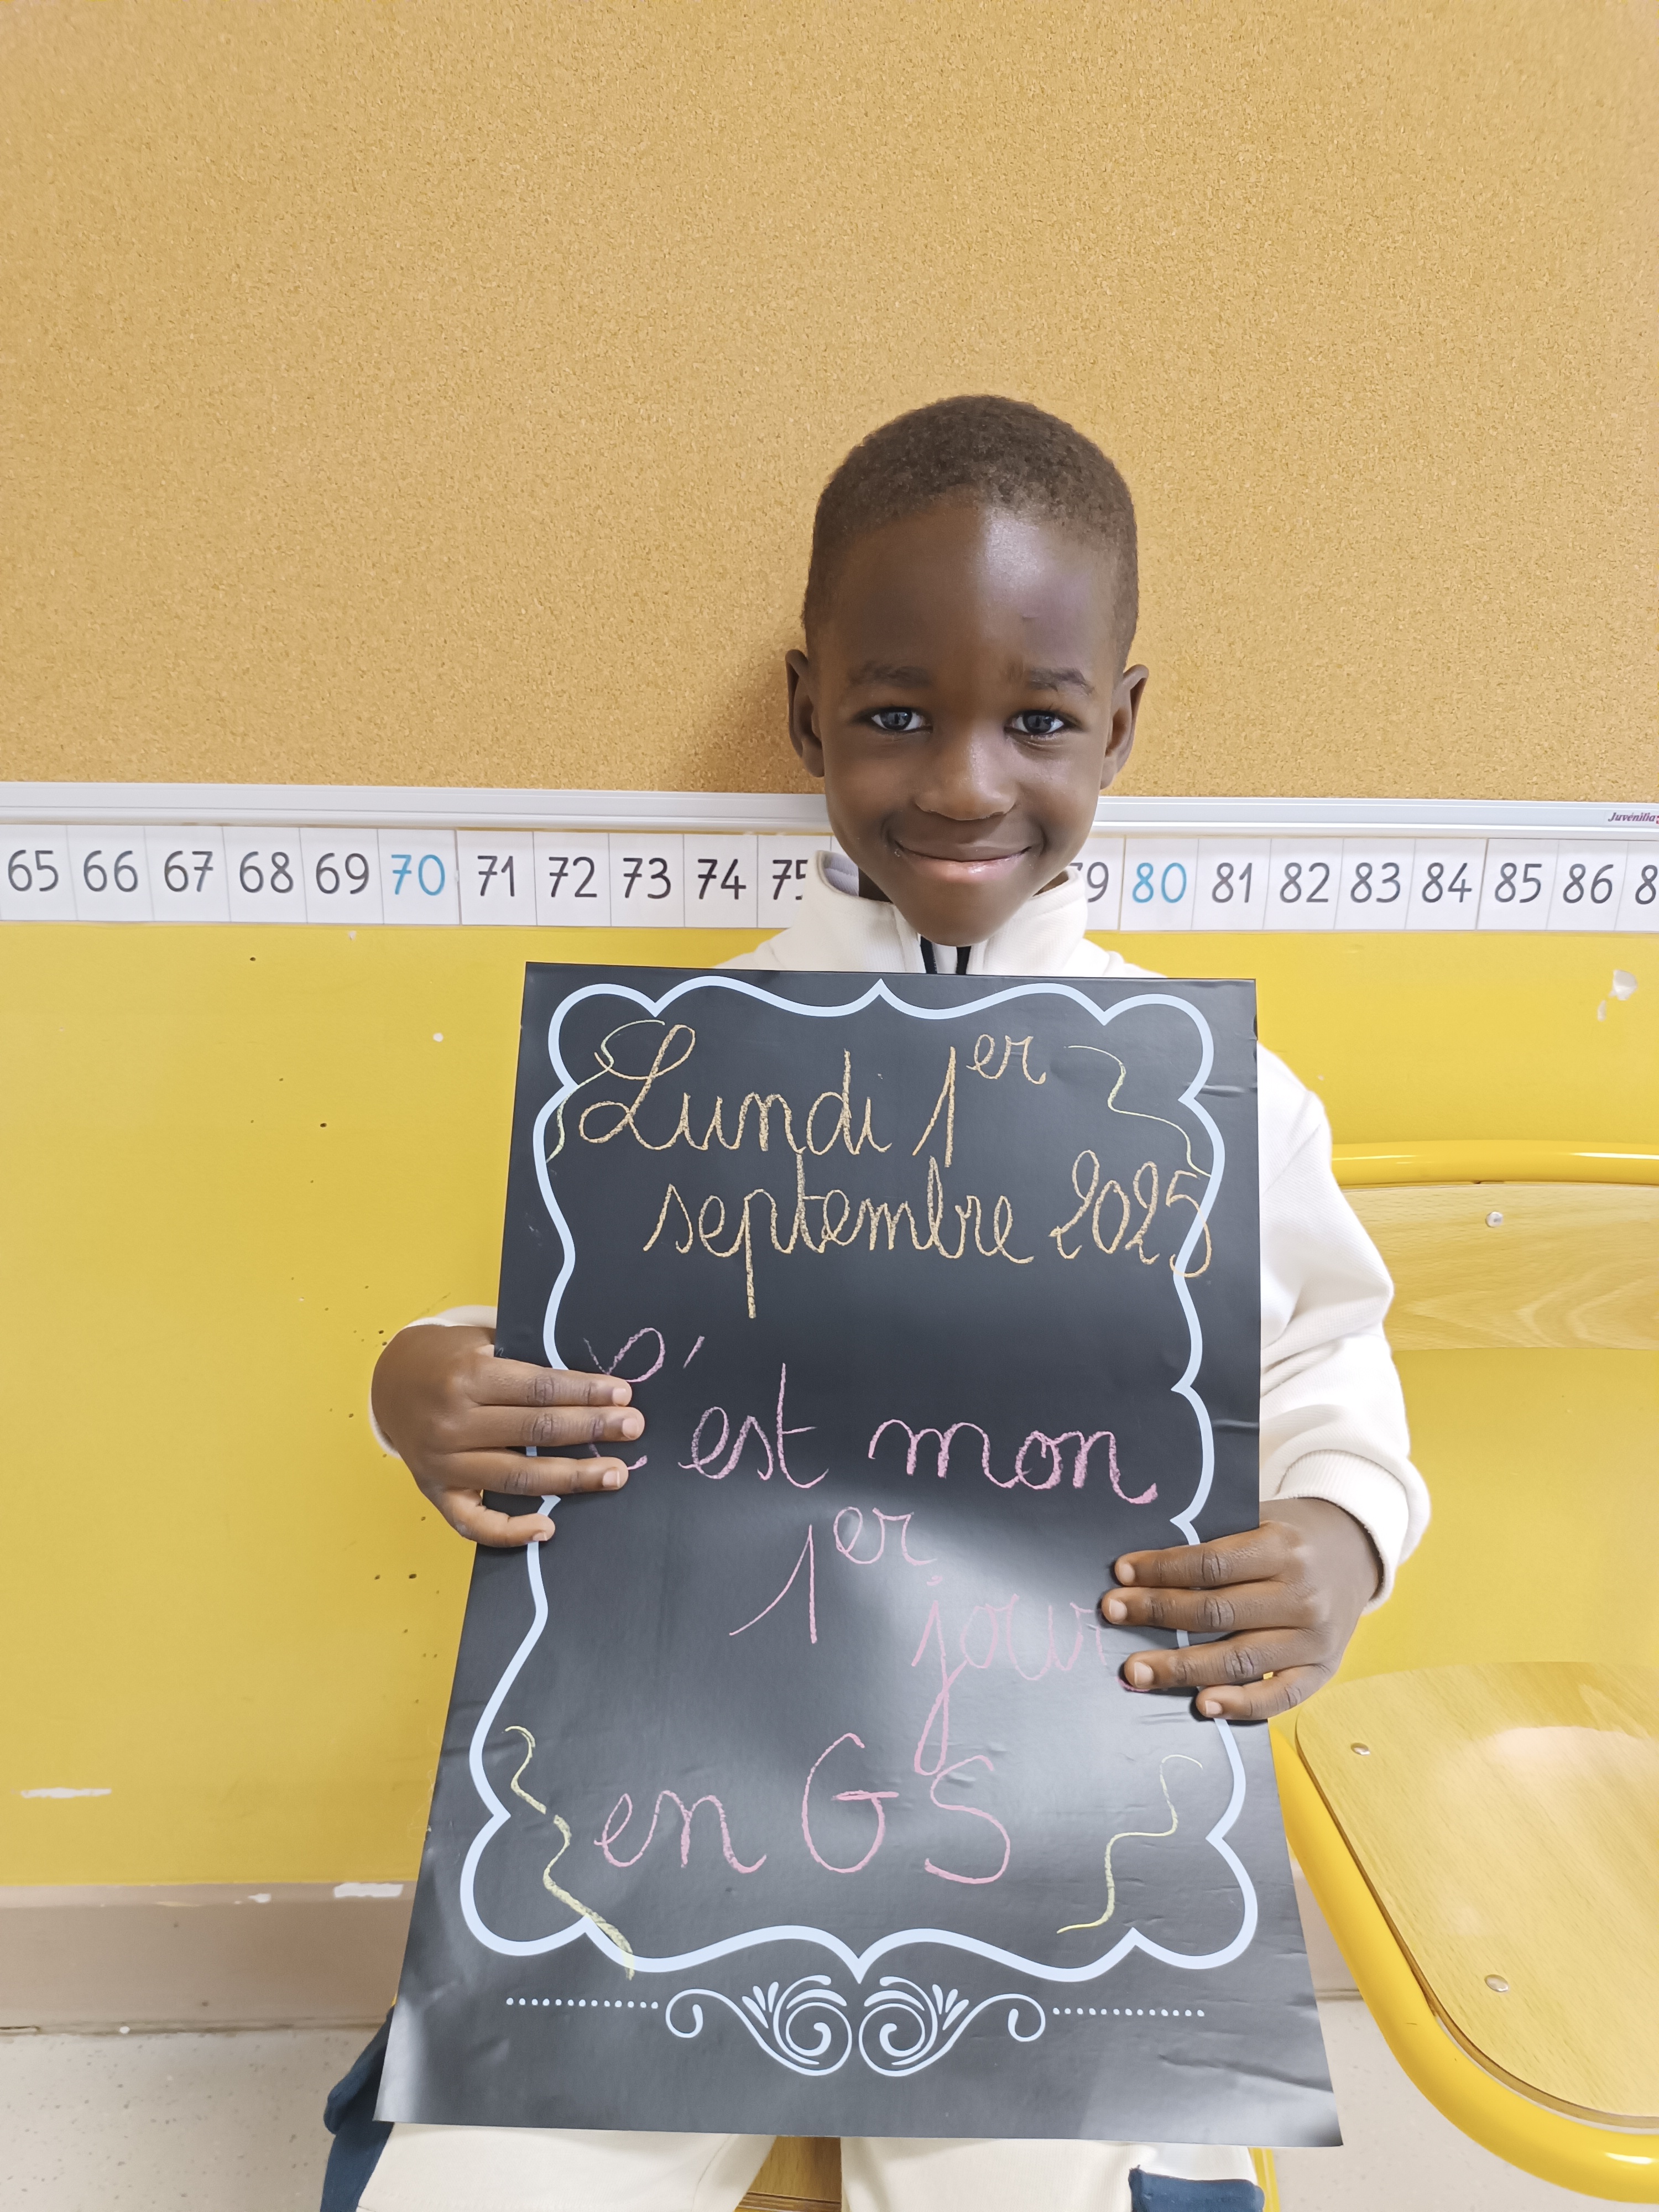 Juvénilia
65 66 67 68 69 70 71 72 73 74 75 79 80 81 82 83 84 85 86 8
Lundi 1er
septembre 2025
C'est mon
1er
jour
en GS